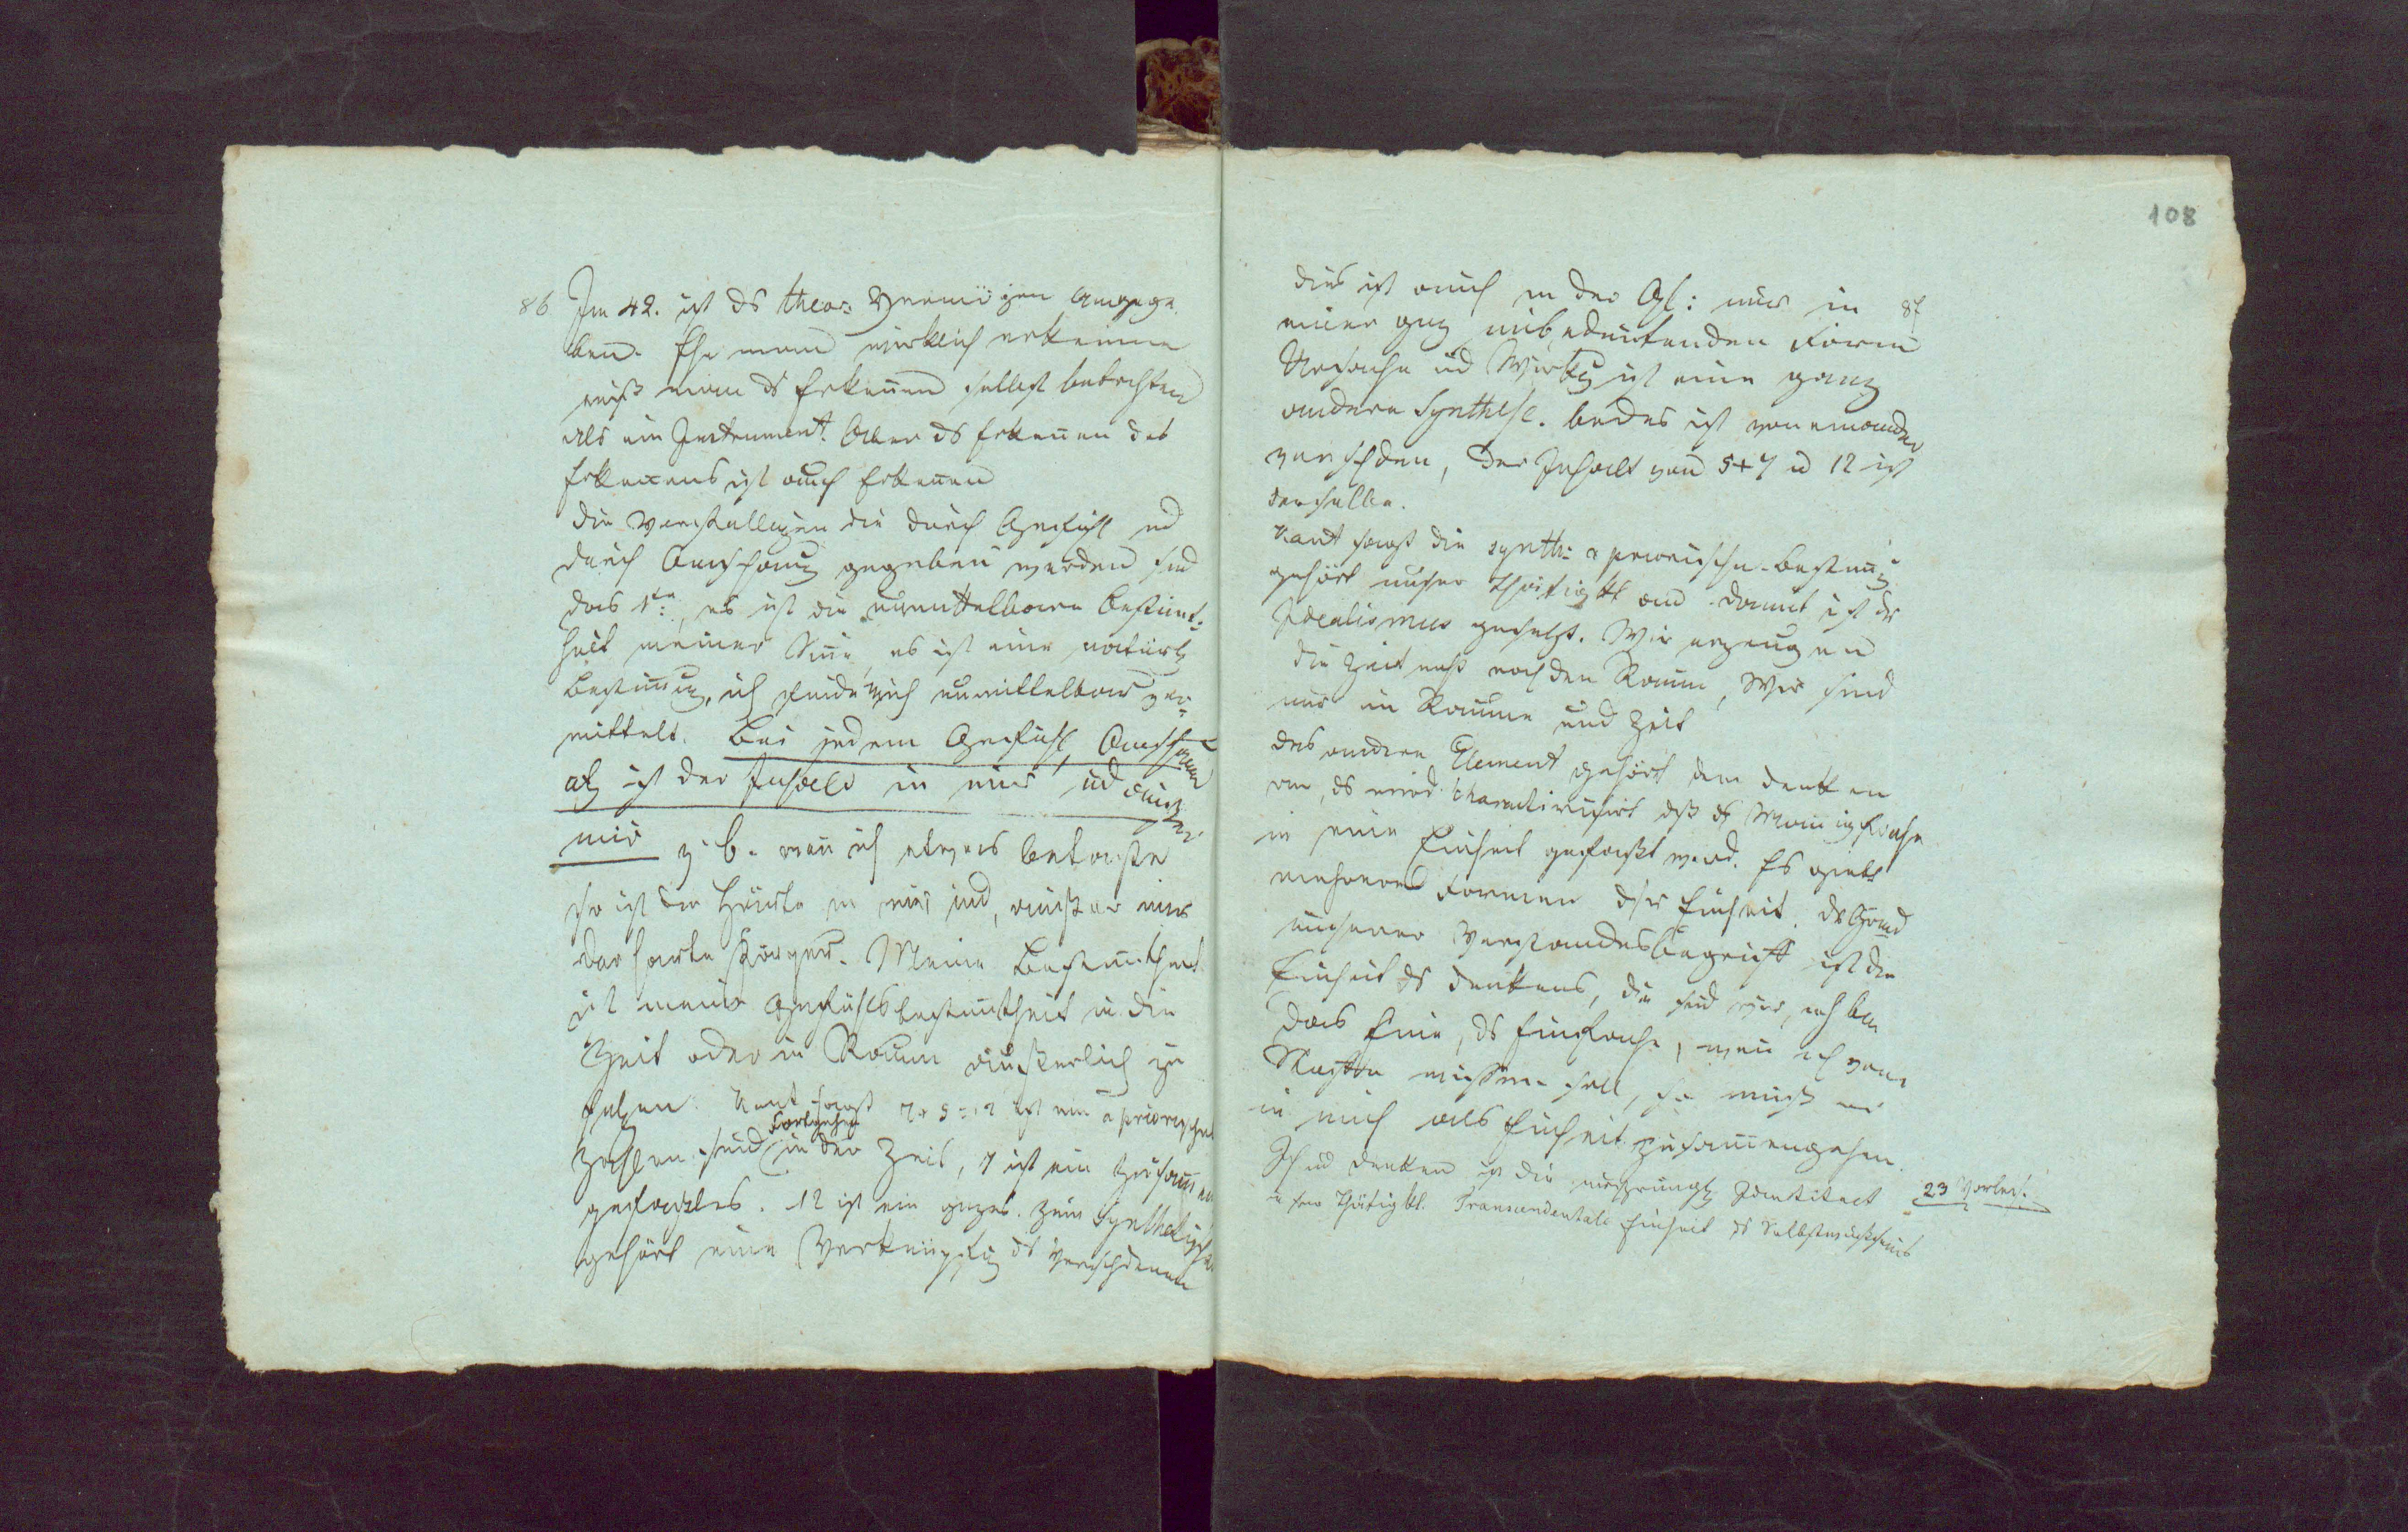 86 Im 42. ist ds theor: Vermögen angege
ben. Ehe man wirklich erkenne
muß man ds Erkennen selbst betrachten
als ein Instrument. Aber ds Erkennen des
Erkennens ist auch Erkennen
die Vorstellungen die durch Gefühl ud
durch Anschauung gegeben werden sind
das 1te, es ist die unmittelbare Bestimt-
heit meiner Sinne, es ist eine natürl
Bestimmung, ich finde mich unmittelbar ver-
mittelt. Bei jedem Gefühl, Anschauung
ist der Inhalt in mir ud außer
mir z. b. wenn ich etwas betaste
so ist die Härte in mir und außer mir
der harte Körper. Meine Bestimtheit
ist meine Gefühlsbestimtheit in die
Zeit oder in Raum äußerlich zu
setzen. Kant sagt 7 + 5 = 12 ist ein a priorischer
Fortgehen
Zahlen sind in der Zeit, 7 ist ein Zusammen
gefaßtes. 12 ist ein gzes. Zum Synthetischen
gehört eine Verknüpfg ds Verschdenen
108
dies ist auch in der Gl: nur in 87
einer gz unbedeutenden Form
Ursache ud Wirkg ist eine ganz
andere Synthese. beides ist von einander
verschden, der Inhalt von 5+7 u 12 ist
derselbe.
Kant sagt die synth: a priorische Bestimug
gehört unsrer Thätigktt an damit ist dr
Idealismus gesetzt. Wir erzeugen
die Zeit nicht noch den Raum, Wir sind
nur im Raume und Zeit
das andere Element gehört dem denken
an, ds wird charakterisirt dß ds Manigfache
in eine Einheit gefaßt werd. Es giebt
mehrere Formen dsr Einheit. Dr Grund
unserer Verstandesbegriffe ist die
Einheit ds denkens, die sind wir, ich bin
das Eine, ds Einfache, wenn ich von
Nichts wissen soll, so muß es
in mich als Einheit zusammengehen.
Ich ud denken ist die ursprüngl Identitaet 23 Vorles.
u der Thätigktt. Transcendentale Einheit ds Selbstbewußtseins